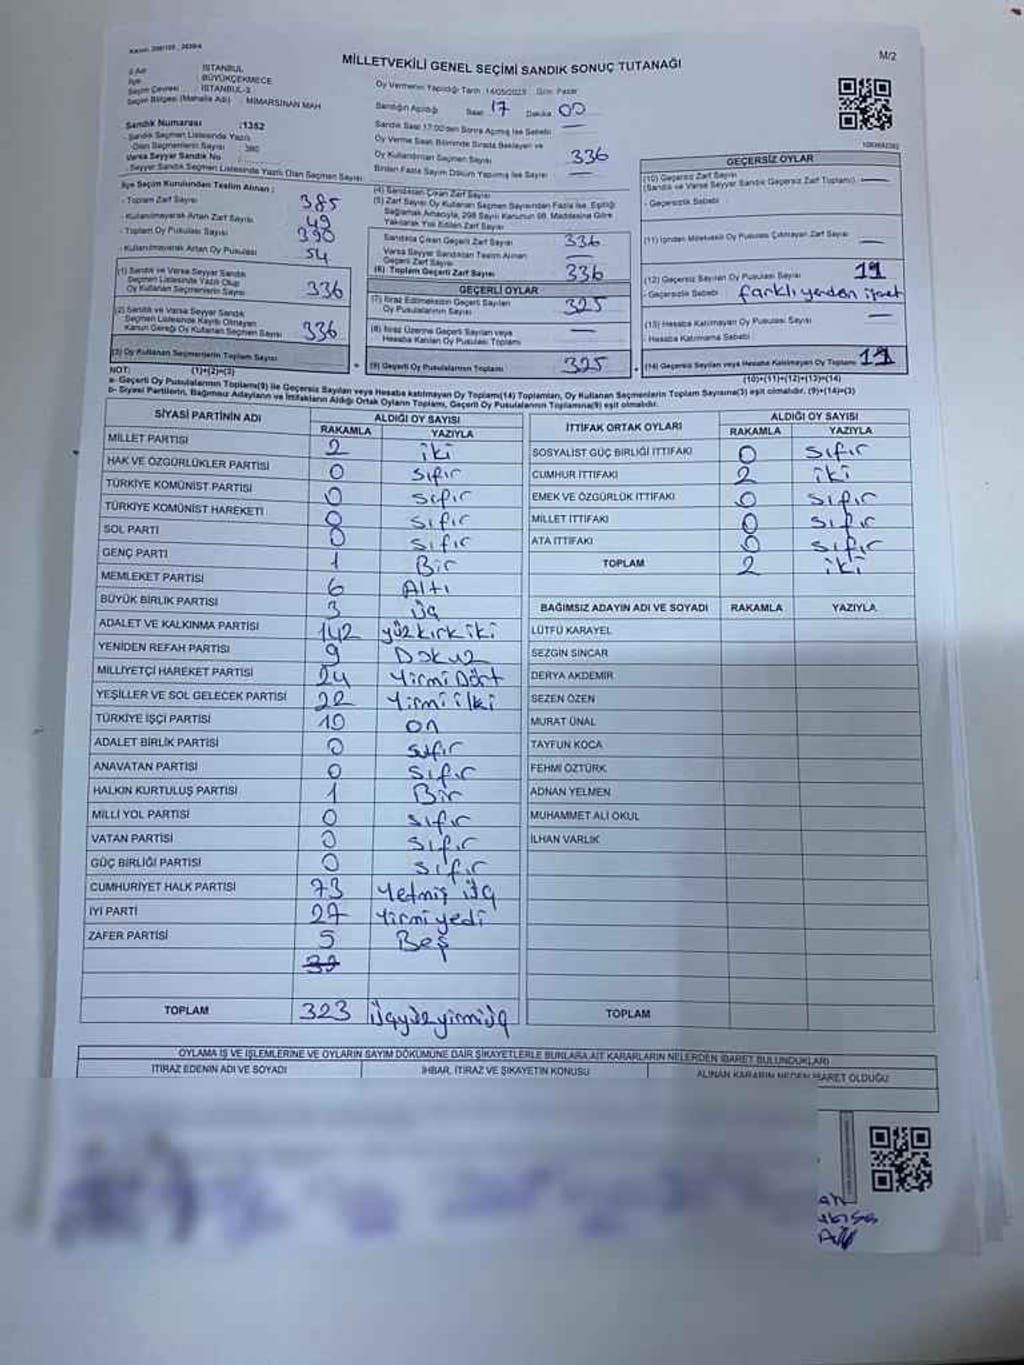 M/2
MİLLETVEKİLİ GENEL SEÇİMİ SANDIK SONUÇ TUTANAĞI
İli Adı : İSTANBUL
İlçe : BÜYÜKÇEKMECE
Seçim Çevresi : İSTANBUL-3
Seçim Bölgesi (Mahalle Adı) : MİMARSİNAN MAH
Sandık Numarası :1352
Sandık Seçmen Listesinde Yazılı
Olan Seçmenlerin Sayısı : 380
Varsa Seyyar Sandık No
Seyyar Sandık Seçmen Listesinde Yazılı Olan Seçmen Sayısı
Oy Vermenin Yapıldığı Tarih :14/05/2023 Gün: Pazar
Sandığın Açıldığı Saat 17 Dakika 00
Sandık Saat 17:00'den Sonra Açılmış İse Sebebi —
Oy Verme Saati Bitiminde Sırada Bekleyen ve
Oy Kullandırılan Seçmen Sayısı 336
Birden Fazla Sayım Döküm Yapılmış İse Sayısı —
İlçe Seçim Kurulundan Teslim Alınan :
- Toplam Zarf Sayısı 385
- Kullanılmayarak Artan Zarf Sayısı 49
- Toplam Oy Pusulası Sayısı 390
- Kullanılmayarak Artan Oy Pusulası 54
(1) Sandık ve Varsa Seyyar Sandık
Seçmen Listesinde Yazılı Olup
Oy Kullanan Seçmenlerin Sayısı 336
(2) Sandık ve Varsa Seyyar Sandık
Seçmen Listesinde Kayıtlı Olmayan
Kanun Gereği Oy Kullanan Seçmen Sayısı 336
(3) Oy Kullanan Seçmenlerin Toplam Sayısı
(1)+(2)=(3)
(4) Sandıktan Çıkan Zarf Sayısı
(5) Zarf Sayısı Oy Kullanan Seçmen Sayısından Fazla İse, Eşitliği
Sağlamak Amacıyla, 298 Sayılı Kanunun 98. Maddesine Göre
Yakılarak Yok Edilen Zarf Sayısı
Sandıkta Çıkan Geçerli Zarf Sayısı 336
Varsa Seyyar Sandıktan Teslim Alınan
Geçerli Zarf Sayısı —
(6) Toplam Geçerli Zarf Sayısı 336
GEÇERLİ OYLAR
(7) İtiraz Edilmeksizin Geçerli Sayılan
Oy Pusulalarının Sayısı 325
(8) İtiraz Üzerine Geçerli Sayılan veya
Hesaba Katılan Oy Pusulası Toplamı —
(9) Geçerli Oy Pusulalarının Toplamı 325
GEÇERSİZ OYLAR
(10) Geçersiz Zarf Sayısı
(Sandık ve Varsa Seyyar Sandık Geçersiz Zarf Toplamı) —
- Geçersizlik Sebebi
(11) İçinden Milletvekili Oy Pusulası Çıkmayan Zarf Sayısı —
(12) Geçersiz Sayılan Oy Pusulası Sayısı 11
- Geçersizlik Sebebi farklı yerden
(13) Hesaba Katılmayan Oy Pusulası Sayısı —
- Hesaba Katılmama Sebebi
(14) Geçersiz Sayılan veya Hesaba Katılmayan Oy Toplamı 11
(10)+(11)+(12)+(13)=(14)
NOT:
a- Geçerli Oy Pusulalarının Toplamı(9) ile Geçersiz Sayılan veya Hesaba katılmayan Oy Toplamı(14) Toplamları, Oy Kullanan Seçmenlerin Toplam Sayısına(3) eşit olmalıdır. (9)+(14)=(3)
b- Siyasi Partilerin, Bağımsız Adayların ve İttifakların Aldığı Ortak Oyların Toplamı, Geçerli Oy Pusulalarının Toplamına(9) eşit olmalıdır.
SİYASİ PARTİNİN ADI ALDIĞI OY SAYISI
RAKAMLA YAZIYLA
MİLLET PARTİSİ 2 iki
HAK VE ÖZGÜRLÜKLER PARTİSİ 0 sıfır
TÜRKİYE KOMÜNİST PARTİSİ 0 sıfır
TÜRKİYE KOMÜNİST HAREKETİ 0 sıfır
SOL PARTİ 0 sıfır
GENÇ PARTİ 1 Bir
MEMLEKET PARTİSİ 6 Altı
BÜYÜK BİRLİK PARTİSİ 3 üç
ADALET VE KALKINMA PARTİSİ 142 yüzkırkiki
YENİDEN REFAH PARTİSİ 9 Dokuz
MİLLİYETÇİ HAREKET PARTİSİ 24 YirmiDört
YEŞİLLER VE SOL GELECEK PARTİSİ 22 Yirmiiki
TÜRKİYE İŞÇİ PARTİSİ 10 on
ADALET BİRLİK PARTİSİ 0 sıfır
ANAVATAN PARTİSİ 0 sıfır
HALKIN KURTULUŞ PARTİSİ 1 Bir
MİLLİ YOL PARTİSİ 0 sıfır
VATAN PARTİSİ 0 sıfır
GÜÇ BİRLİĞİ PARTİSİ 0 sıfır
CUMHURİYET HALK PARTİSİ 73 Yetmiş üç
İYİ PARTİ 27 Yirmiyedi
ZAFER PARTİSİ 5 Beş
TOPLAM 323 üçyüzyirmiüç
İTTİFAK ORTAK OYLARI ALDIĞI OY SAYISI
RAKAMLA YAZIYLA
SOSYALİST GÜÇ BİRLİĞİ İTTİFAKI 0 sıfır
CUMHUR İTTİFAKI 2 iki
EMEK VE ÖZGÜRLÜK İTTİFAKI 0 sıfır
MİLLET İTTİFAKI 0 sıfır
ATA İTTİFAKI 0 sıfır
TOPLAM 2 iki
BAĞIMSIZ ADAYIN ADI VE SOYADI RAKAMLA YAZIYLA
LÜTFÜ KARAYEL
SEZGİN SİNCAR
DERYA AKDEMİR
SEZEN ÖZEN
MURAT ÜNAL
TAYFUN KOCA
FEHMİ ÖZTÜRK
ADNAN YELMEN
MUHAMMET ALİ OKUL
İLHAN VARLIK
TOPLAM
OYLAMA İŞ VE İŞLEMLERİNE VE OYLARIN SAYIM DÖKÜMÜNE DAİR ŞİKAYETLERLE BUNLARA AİT KARARLARIN NELERDEN İBARET BULUNDUKLARI
İTİRAZ EDENİN ADI VE SOYADI İHBAR, İTİRAZ VE ŞİKAYETİN KONUSU ALINAN KARARIN NEDEN İBARET OLDUĞU